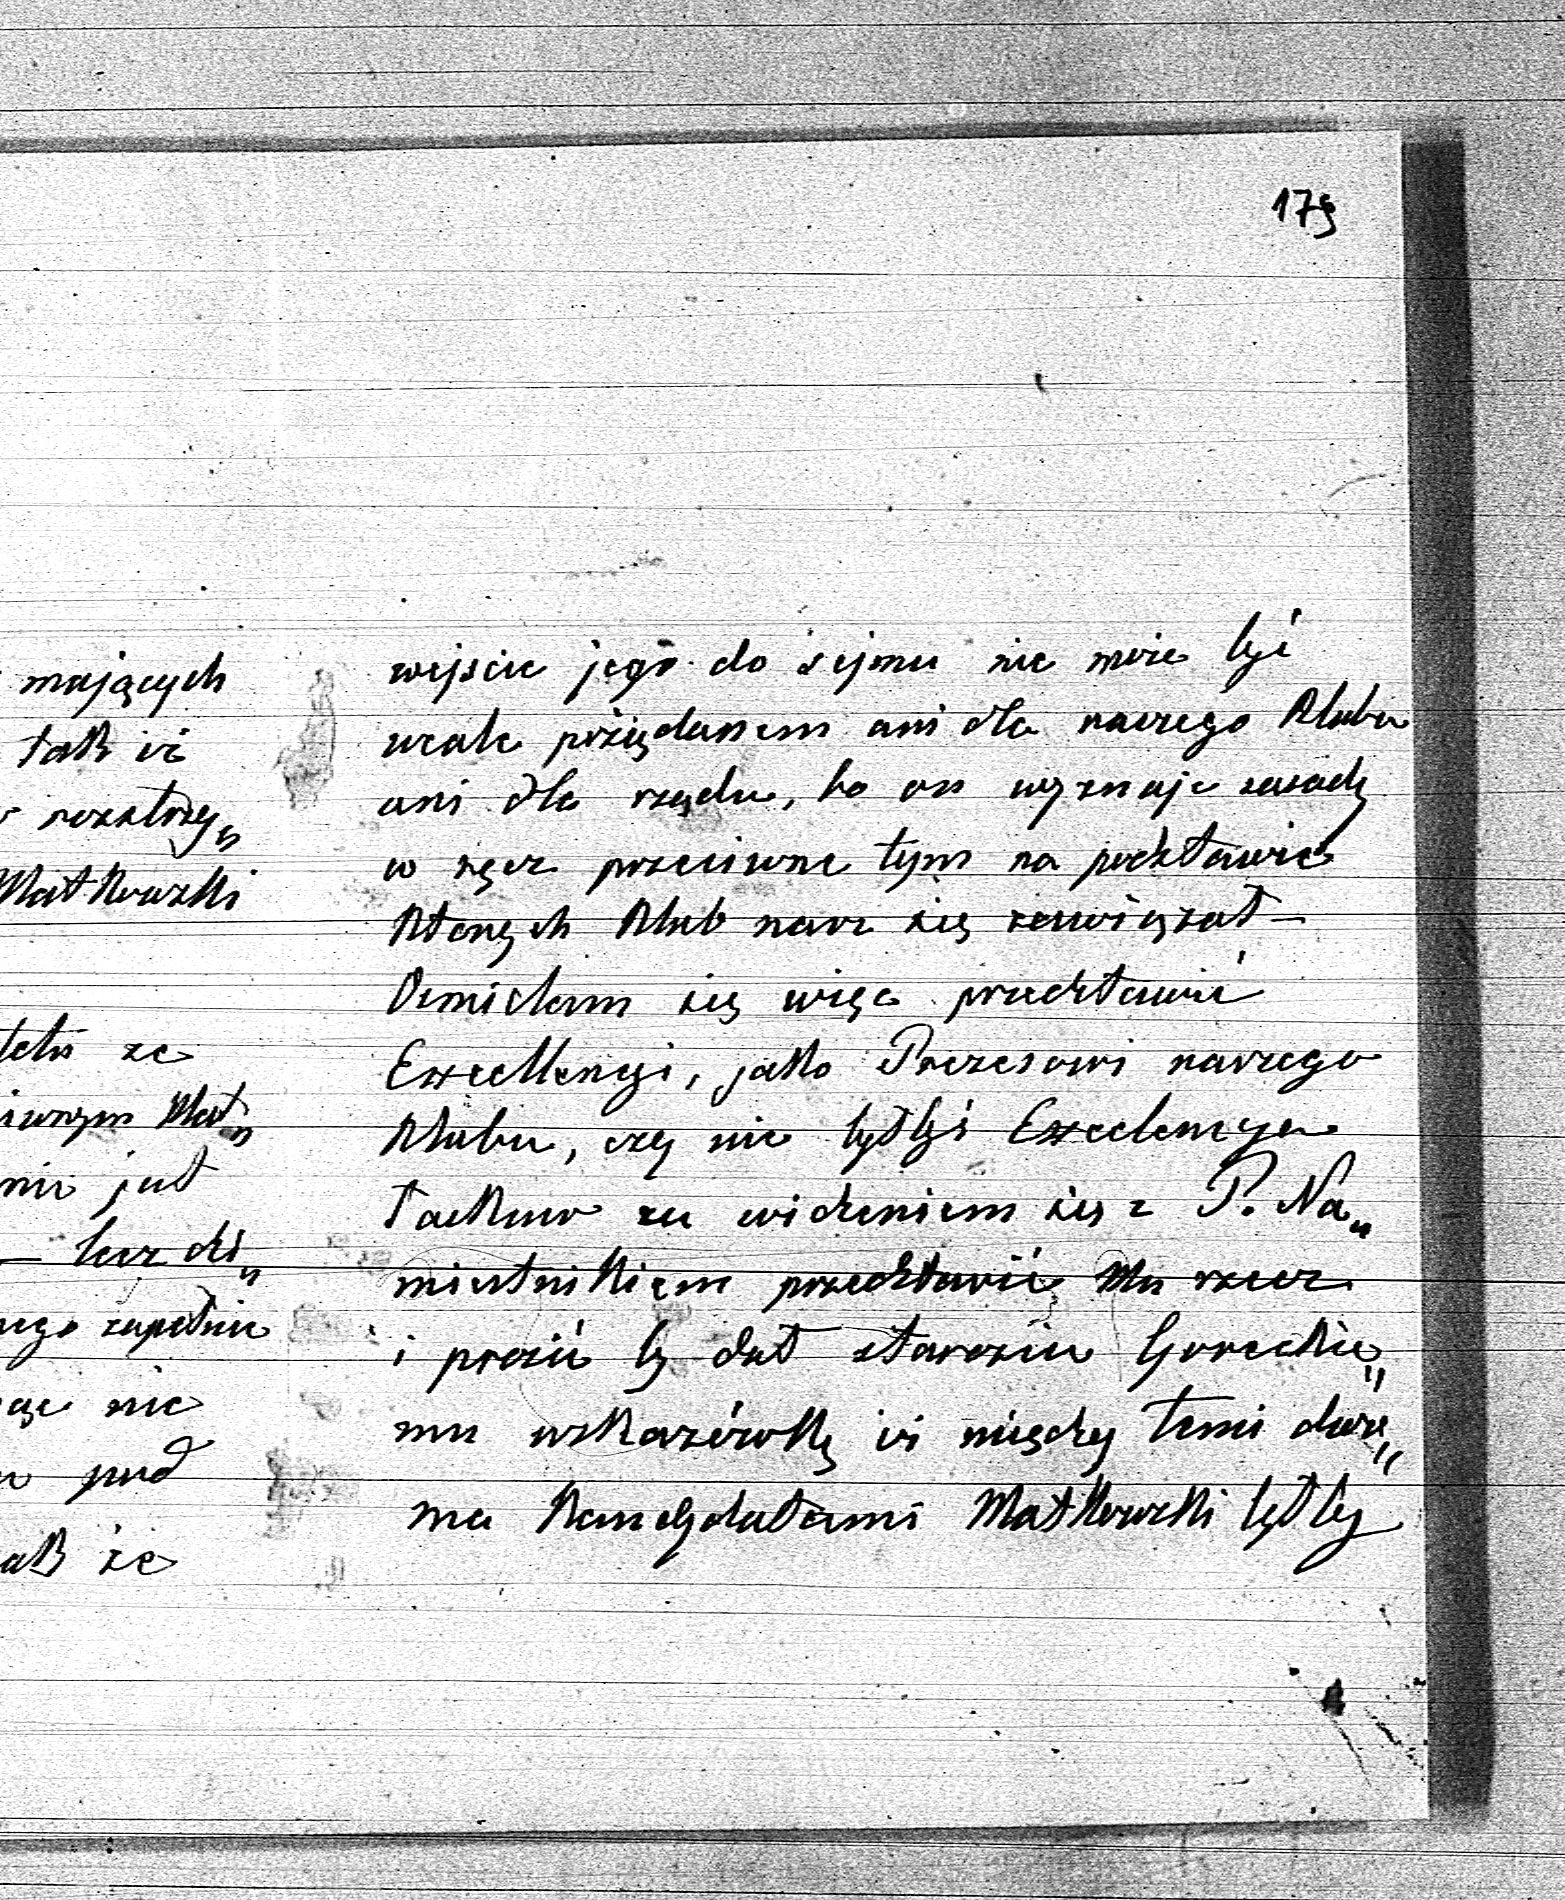 179
mających
tak iż
rozstrzy„
Matkowski
że
iwnym Mat„
nie jest
— lecz dzi„
nego zupełnie
nie
pod
ak że
wejście jego do sejmu nie może być
wcale pożądanem ani dla naszego Klubu
ani dla rządu, bo on wyznaje zasady
w ręcz przeciwne tym na podstawie
których Klub nasz się zawiązał —
Osmielam się więc przedstawić
Excellencyi, jako Prezesowi naszego
Klubu, czy nie byłbyś Excelencya
łaskaw za widzeniem się z P. Na„
miestnikiem przedstawić Mu rzecz
i prosić by dał staroscie Goreckie„
mu wskazówkę iż między temi dwo„
ma kandydatami Matkowski byłby